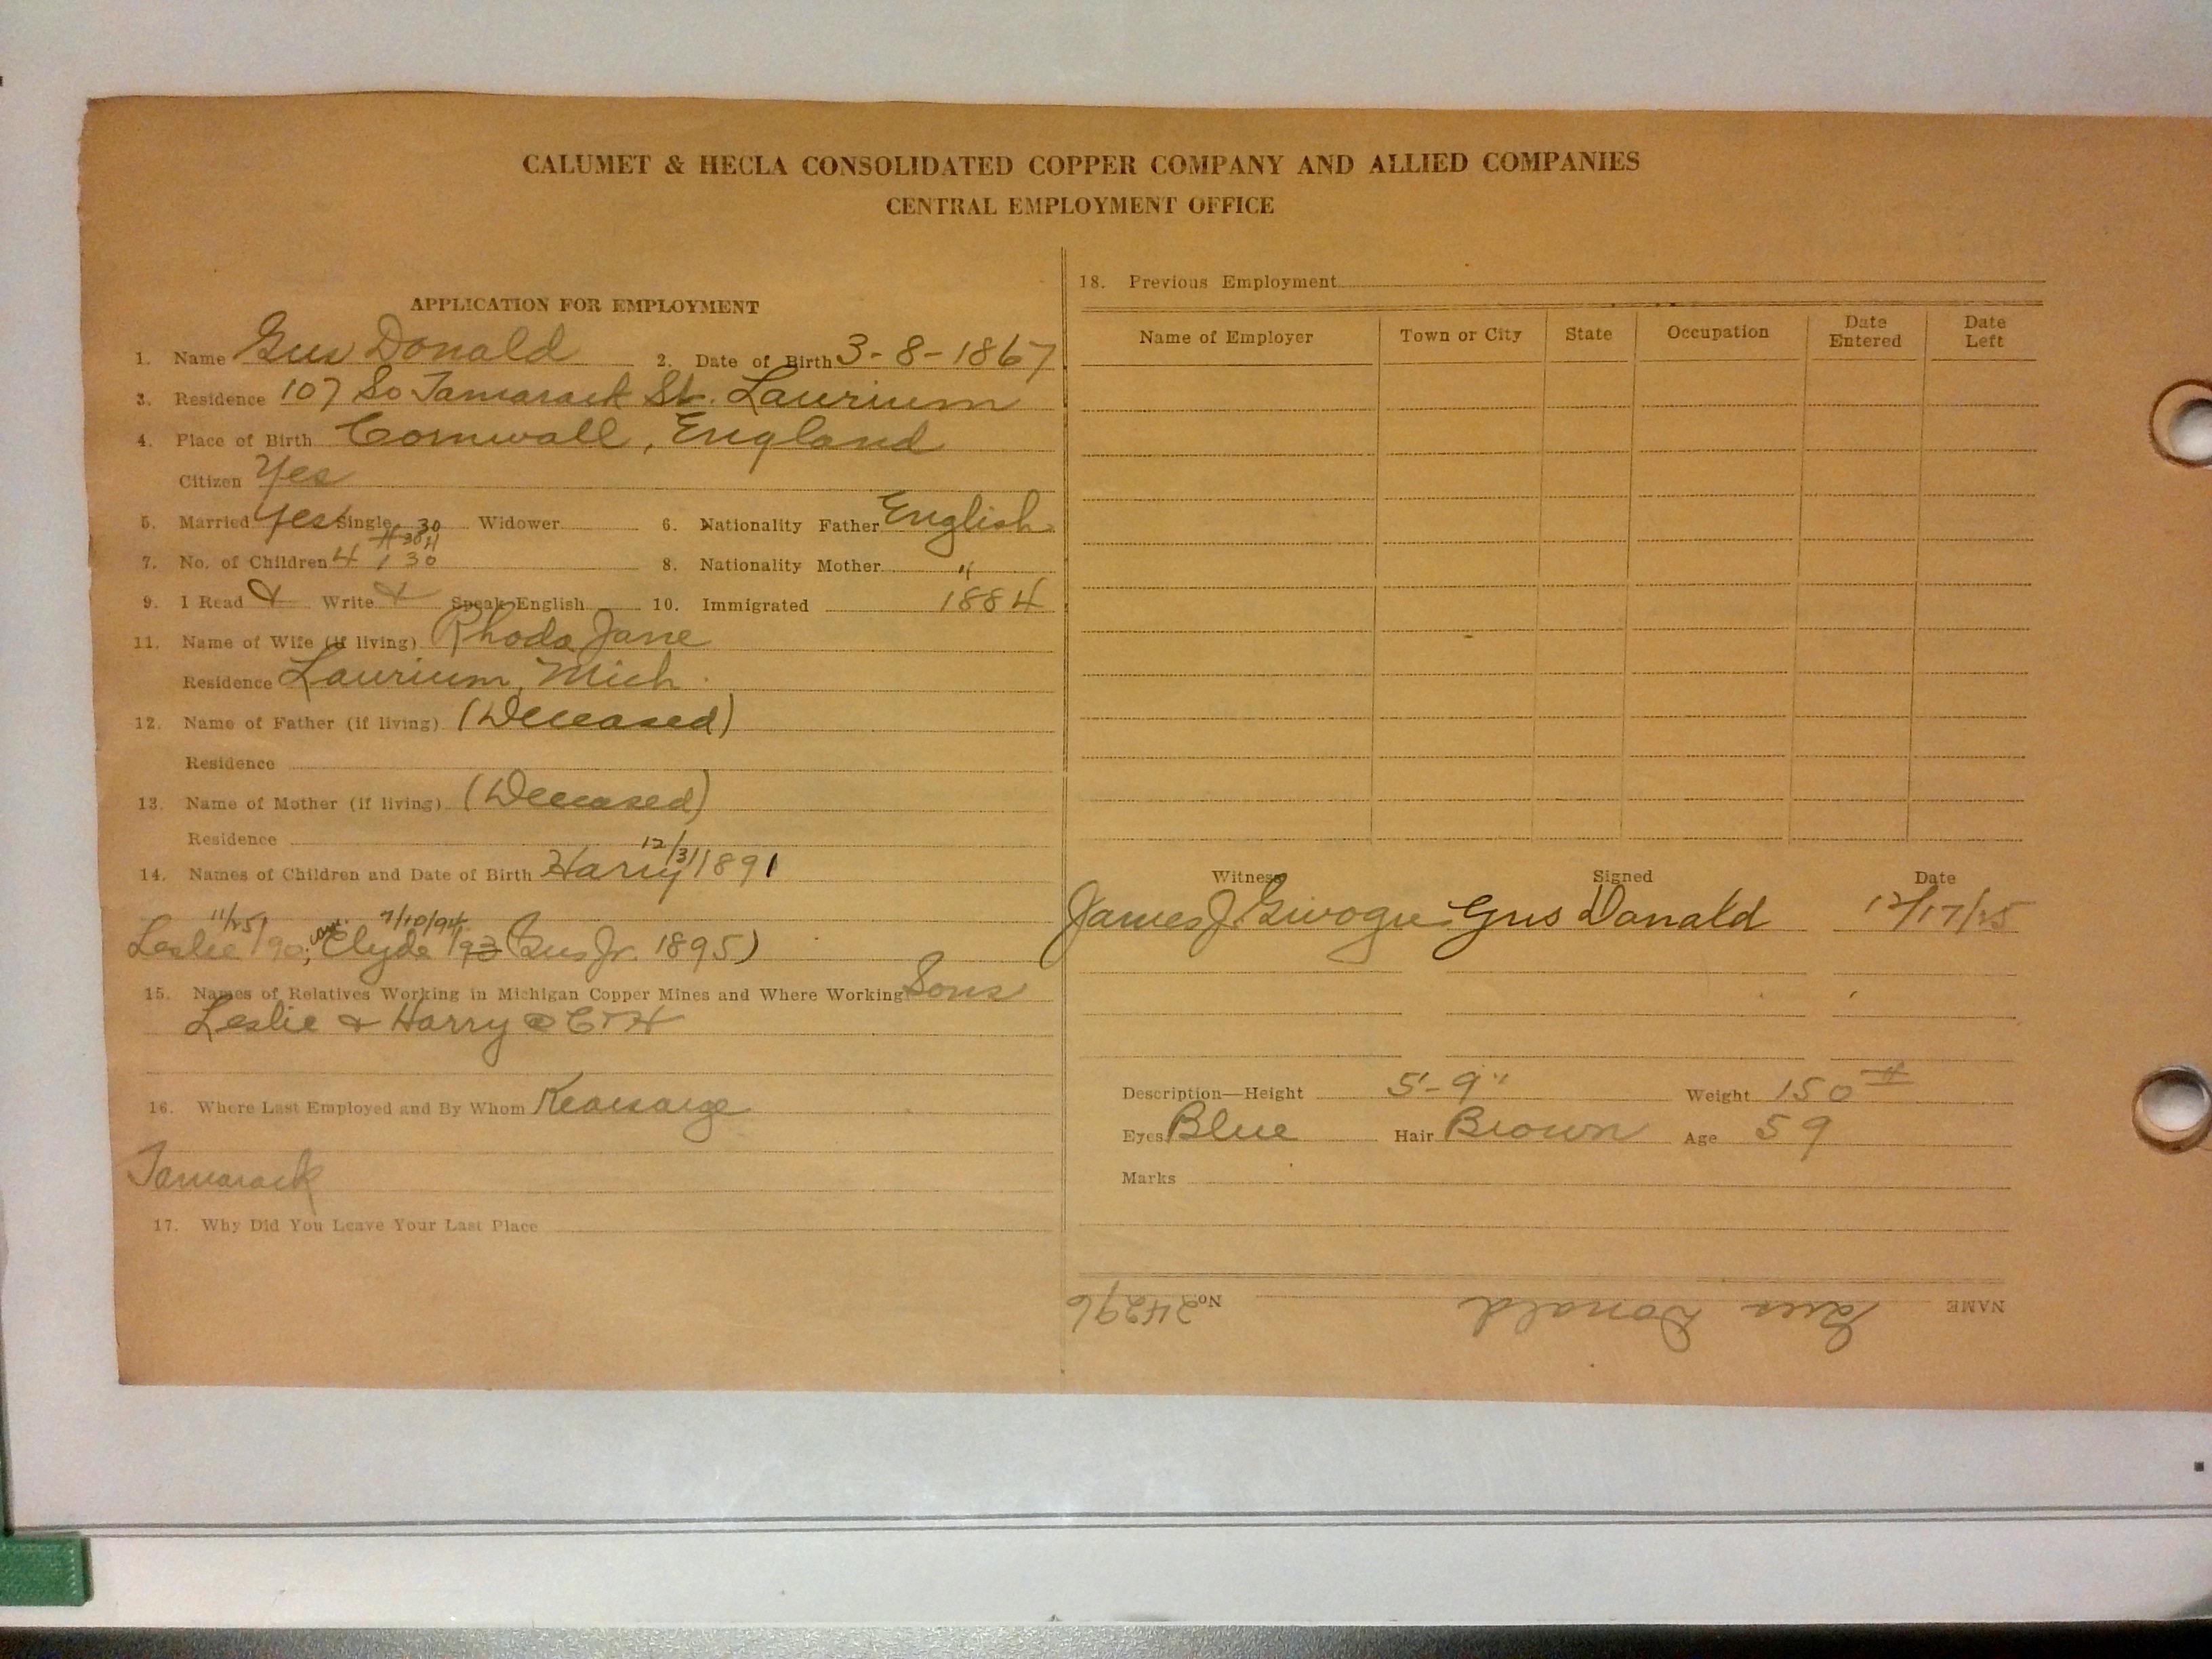 CALUMET & HECLA CONSOLIDATED COPPER COMPANY AND ALLIED COMPANIES
CENTRAL EMPLOYMENT OFFICE
APPLICATION FOR EMPLOYMENT
1. Name Gus Donald 2. Date of Birth 3-8-1867
3. Residence 107 So Tamarack St. Laurium
4. Place of Birth Cornwall, England
Citizen Yes
5. Married Yes Single Widower 6. Nationality Father English
7. No. of Children 4 8. Nationality Mother "
9. I Read & Write & Speak English 10. Immigrated 1884
11. Name of Wife (if living) Rhoda Jane
Residence Laurium, Mich.
12. Name of Father (if living) (Deceased)
Residence
13. Name of Mother (if living) (Deceased)
Residence
12/31
14. Names of Children and Date of Birth Harry 1891
11/25/ 7/10/94
Leslie /90; Clyde /93 (Gus Jr. 1895)
15. Names of Relatives Working in Michigan Copper Mines and Where Working Sons
Leslie & Harry @ C+H
16. Where Last Employed and By Whom Kearsarge
Tamarack
17. Why Did You Leave Your Last Place
18. Previous Employment
Name of Employer Town or City State Occupation Date Entered Date Left
Witness Signed Date
James J. Gus Donald 12/17/25
Description—Height 5'-9" Weight 150#
Eyes Blue Hair Brown Age 59
Marks
NAME Gus Donald No. 24296